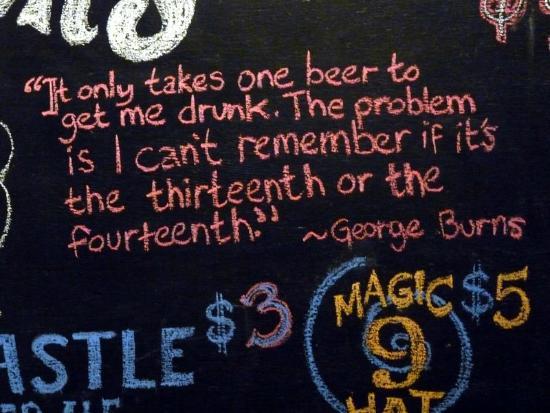 “It only takes one beer to
get me drunk. The problem
is I can't remember if it's
the thirteenth or the
fourteenth.”
~George Burns
$3
MAGIC $5
9
HAT
ASTLE